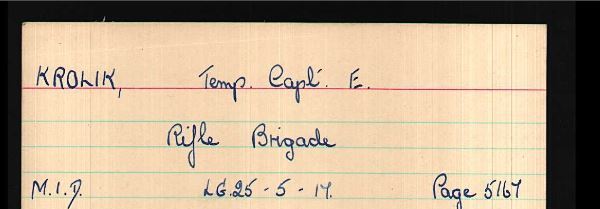 KROLIK, Temp. Capt. E.
Rifle Brigade
M.I.D. LG.25-5-17. Page 5167